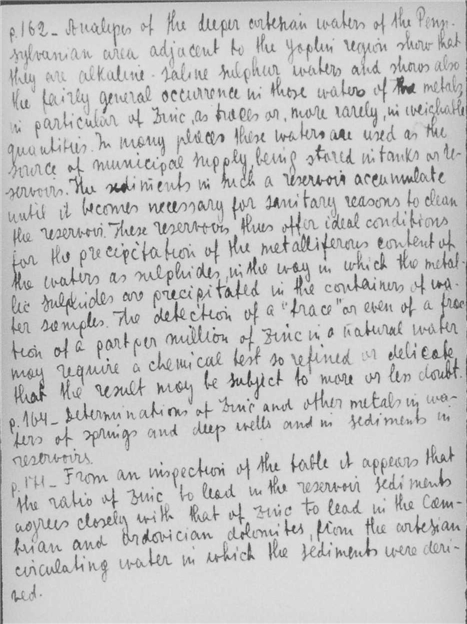 p.162_ Analyses of the deeper artesian waters of the Penn-
sylvanian area adjacent to the Joplin region show that
they are alkaline-saline sulphur waters, and shows also
the fairly general occurrence in those waters of the metals
in particular of Zinc, as traces or, more rarely, in weighable
quantities. In many places these waters are used as the
source of municipal supply being stored in tanks or re-
servoirs. The sediments in such a reservoir accumulate
until it becomes necessary for sanitary reasons to clean
the reservoir. These reservoirs thus offer ideal conditions
for the precipitation of the metalliferous content of
the waters as sulphides, in the way in which the metal-
lic sulphides are precipitated in the containers of wa-
ter samples. The detection of a "trace" or even of a frac
tion of a part per million of Zinc in a natural water
may require a chemical test so refined or delicate
that the result may be subject to more or less doubt.
p.164_ Determinations of Zinc and other metals in wa-
ters of springs and deep wells and in sediments in
reservoirs.
p.171_ From an inspection of the table it appears that
the ratio of Zinc to lead in the reservoir sediments
agrees closely with that of Zinc to lead in the Cam-
brian and Ordovician dolomites, from the artesian
circulating water in which the sediments were deri-
ved.